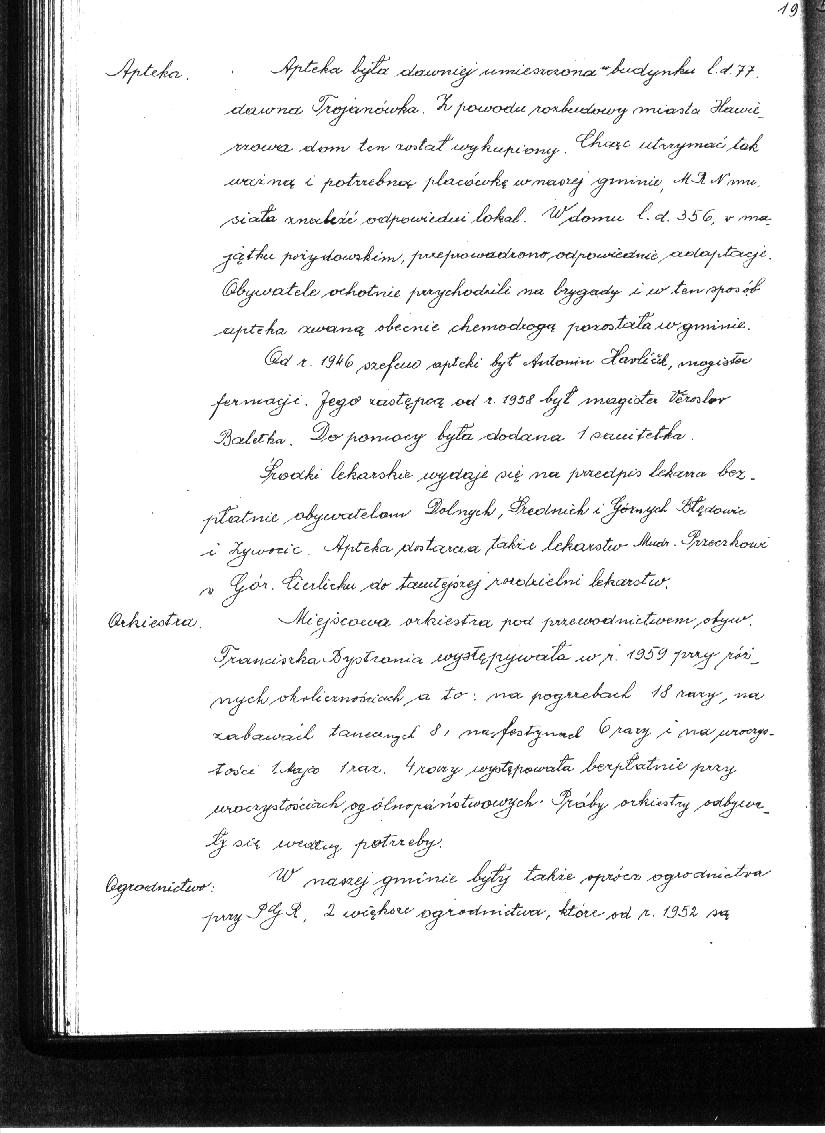 19
Apteka. Apteka była dawniej umieszczona w budynku l.d. 77.
dawna Trojanówka. Z powodu rozbudowy miasta Hawie_
rzowa dom ten został wykupiony. Chcąc utrzymać tak
ważną i potrzebną placówkę w naszej gminie, MRN mu_
siała znaleźć odpowiedni lokal. W domu l.d. 356, v ma_
jątku pożydowskim, przeprowadzono odpowiednie adaptacje.
Obywatele ochotnie przychodzili na brygady i w ten sposób
apteka zwaną obecnie chemodrogą pozostała w gminie.
Od r. 1946 szefem apteki był Antonin Havlíček, magister
farmacji. Jego zastępcą od r. 1958 był magister Věroslav
Baletka. Do pomocy była dodana 1 sanitetka.
Środki lekarskie wydaje się na przedpis lekarza bez_
płatnie obywatelom Dolnych, Średnich i Górnych Błędowic
i Żywocic. Apteka dostarcza także lekarstw Mudr. Przeczkowi
v Gór. Cierlicku do tamtejszej rozdzielni lekarstw.
Orkiestra. Miejscowa orkiestra pod przewodnictwem obyw.
Franciszka Dystrania występywała w r. 1959 przy róż_
nych okolicznościach, a to: na pogrzebach 18 razy, na
zabawach tanecznych 8, na festynach 6 razy i na uroczys-
tości 1. maja 1 raz. 4 razy występowała bezpłatnie przy
uroczystościach ogólnopaństwowych. Próby orkiestry odbywa_
ły się według potrzeby.
Ogrodnictwo: W naszej gminie były także oprócz ogrodnictwa
przy PGR, 2 większe ogrodnictwa, które od r. 1952 są